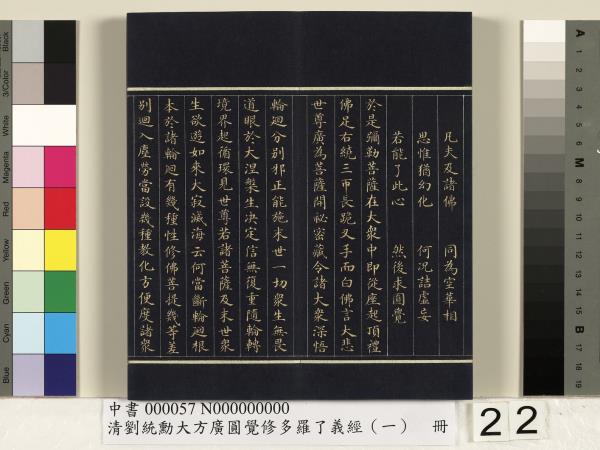 凡夫及諸佛 同為空華相
思惟猶幻化 何況詰虛妄
若能了此心 然後求圓覺
於是彌勒菩薩在大眾中即從座起頂禮
佛足右繞三帀長跪叉手而白佛言大悲
世尊廣為菩薩開祕密藏令諸大眾深悟
輪迴分別邪正能施末世一切眾生無畏
道眼於大涅槃生決定信無復重隨輪轉
境界起循環見世尊若諸菩薩及末世眾
生欲遊如來大寂滅海云何當斷輪迴根
本於諸輪迴有幾種性修佛菩提幾等差
別迴入塵勞當設幾種教化方便度諸眾
中書 000057 N000000000
清劉統勳大方廣圓覺修多羅了義經（一） 冊
22
Black
3/Color
White
Magenta
Red
Yellow
Green
Cyan
Blue
A
1
2
3
4
5
6
M
8
9
10
11
12
13
14
15
B
17
18
19